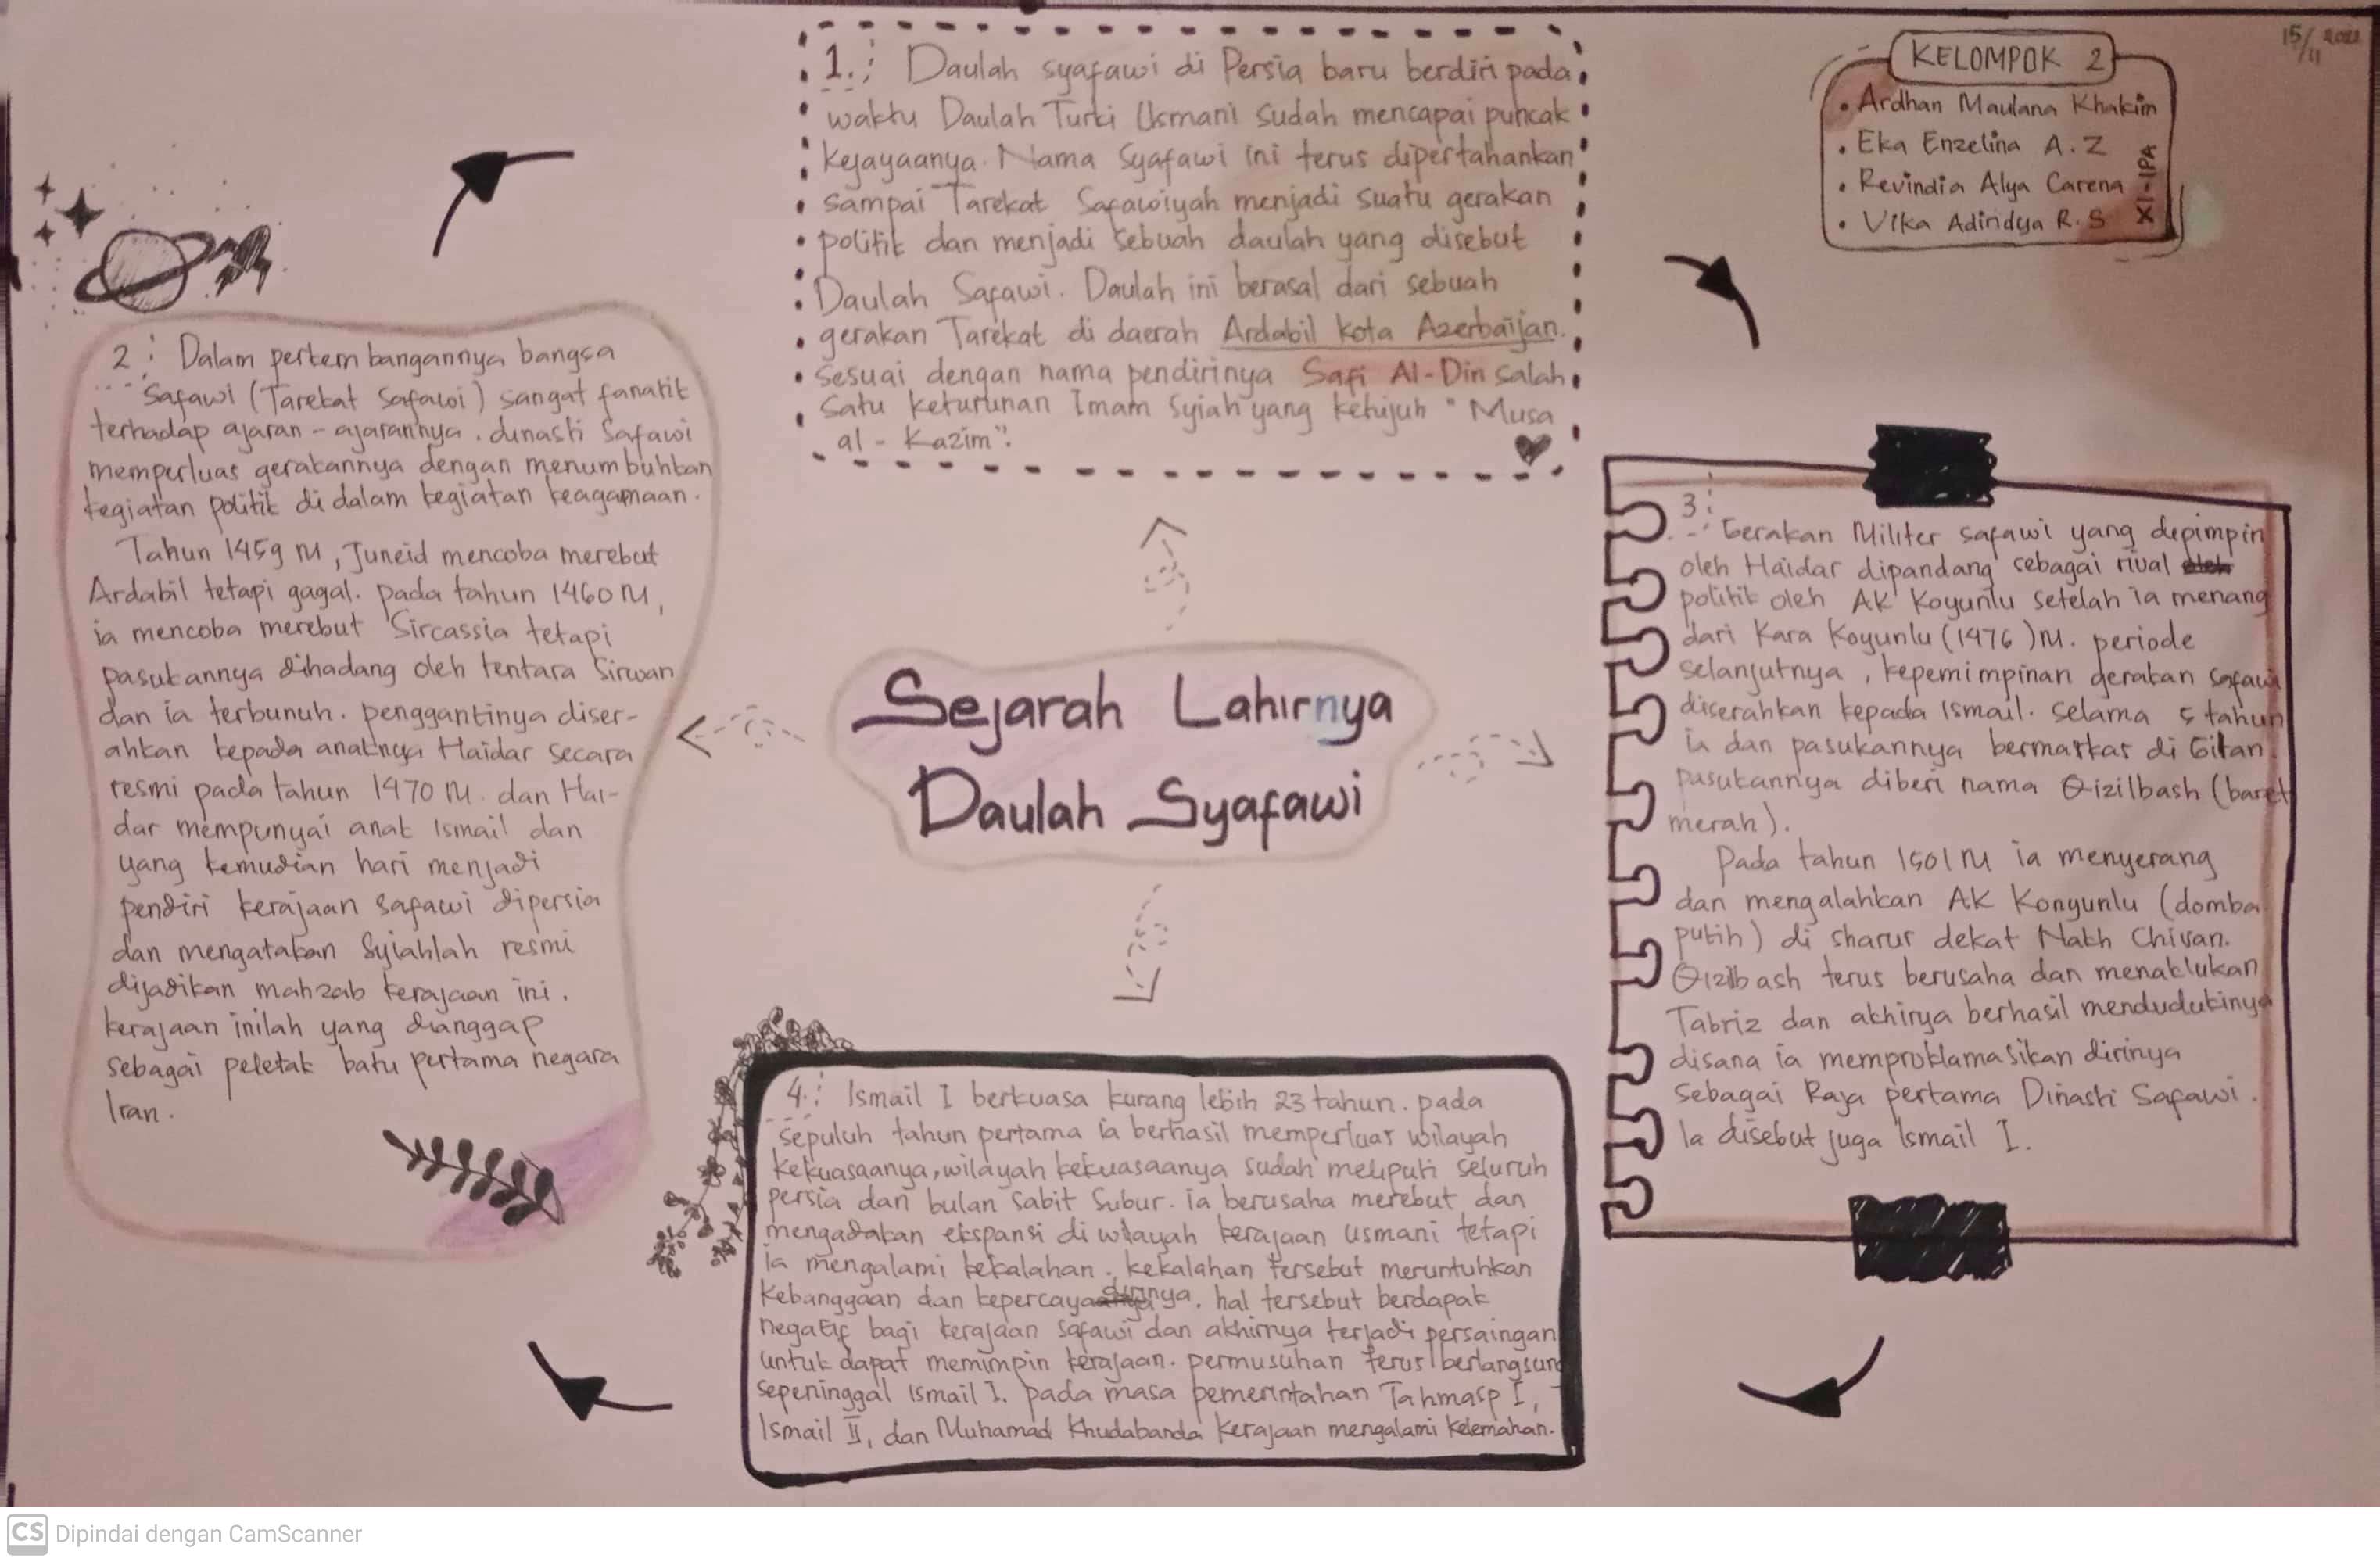 Sejarah Lahirnya
Daulah Syafawi
KELOMPOK 2
• Ardhan Maulana Khakim
• Eka Enzelina A.Z
• Revindia Alya Carena
• Vika Adindya R.S
XI-IPA
15/11 2022
1. : Daulah syafawi di Persia baru berdiri pada
waktu Daulah Turki Usmani sudah mencapai puncak
kejayaanya. Nama Syafawi ini terus dipertahankan
sampai Tarekat Safawiyah menjadi suatu gerakan
politik dan menjadi sebuah daulah yang disebut
Daulah Safawi. Daulah ini berasal dari sebuah
gerakan Tarekat di daerah Ardabil kota Azerbaijan.
Sesuai dengan nama pendirinya Safi Al-Din salah
satu keturunan Imam Syiah yang ketujuh "Musa
al-Kazim".
2 : Dalam perkembangannya bangsa
Safawi (Tarekat Safawi) sangat fanatik
terhadap ajaran-ajarannya. dinasti Safawi
memperluas gerakannya dengan menumbuhkan
kegiatan politik di dalam kegiatan keagamaan.
Tahun 1459 M, Juneid mencoba merebut
Ardabil tetapi gagal. pada tahun 1460 M,
ia mencoba merebut Sircassia tetapi
pasukannya dihadang oleh tentara Sirwan
dan ia terbunuh. penggantinya diser-
ahkan kepada anaknya Haidar secara
resmi pada tahun 1470 M. dan Hai-
dar mempunyai anak Ismail dan
yang kemudian hari menjadi
pendiri kerajaan safawi dipersia
dan mengatakan Syiahlah resmi
dijadikan mahzab kerajaan ini.
kerajaan inilah yang dianggap
sebagai peletak batu pertama negara
Iran.
3 :
Gerakan Militer safawi yang depimpin
oleh Haidar dipandang sebagai rival
politik oleh AK Koyunlu setelah ia menang
dari Kara Koyunlu (1476) M. periode
selanjutnya, kepemimpinan gerakan safawi
diserahkan kepada Ismail. selama 5 tahun
ia dan pasukannya bermarkas di Gilan.
pasukannya diberi nama Qizilbash (baret
merah).
Pada tahun 1501 M ia menyerang
dan mengalahkan AK Konyunlu (domba
putih) di sharur dekat Nakh Chivan.
Qizilbash terus berusaha dan menaklukan
Tabriz dan akhirya berhasil mendudukinya
disana ia memproklamasikan dirinya
sebagai Raja pertama Dinasti Safawi.
Ia disebut juga Ismail I.
4. : Ismail I berkuasa kurang lebih 23 tahun. pada
sepuluh tahun pertama ia berhasil memperluas wilayah
kekuasaanya, wilayah kekuasaanya sudah meliputi seluruh
persia dan bulan sabit subur. ia berusaha merebut dan
mengadakan ekspansi di wilayah kerajaan usmani tetapi
ia mengalami kekalahan. kekalahan tersebut meruntuhkan
kebanggaan dan kepercayaan dirinya. hal tersebut berdapak
negatif bagi kerajaan safawi dan akhirnya terjadi persaingan
untuk dapat memimpin kerajaan. permusuhan terus berlangsung
sepeninggal Ismail I. pada masa pemerintahan Tahmasp I,
Ismail II, dan Muhamad Khudabanda kerajaan mengalami kelemahan.
CS Dipindai dengan CamScanner